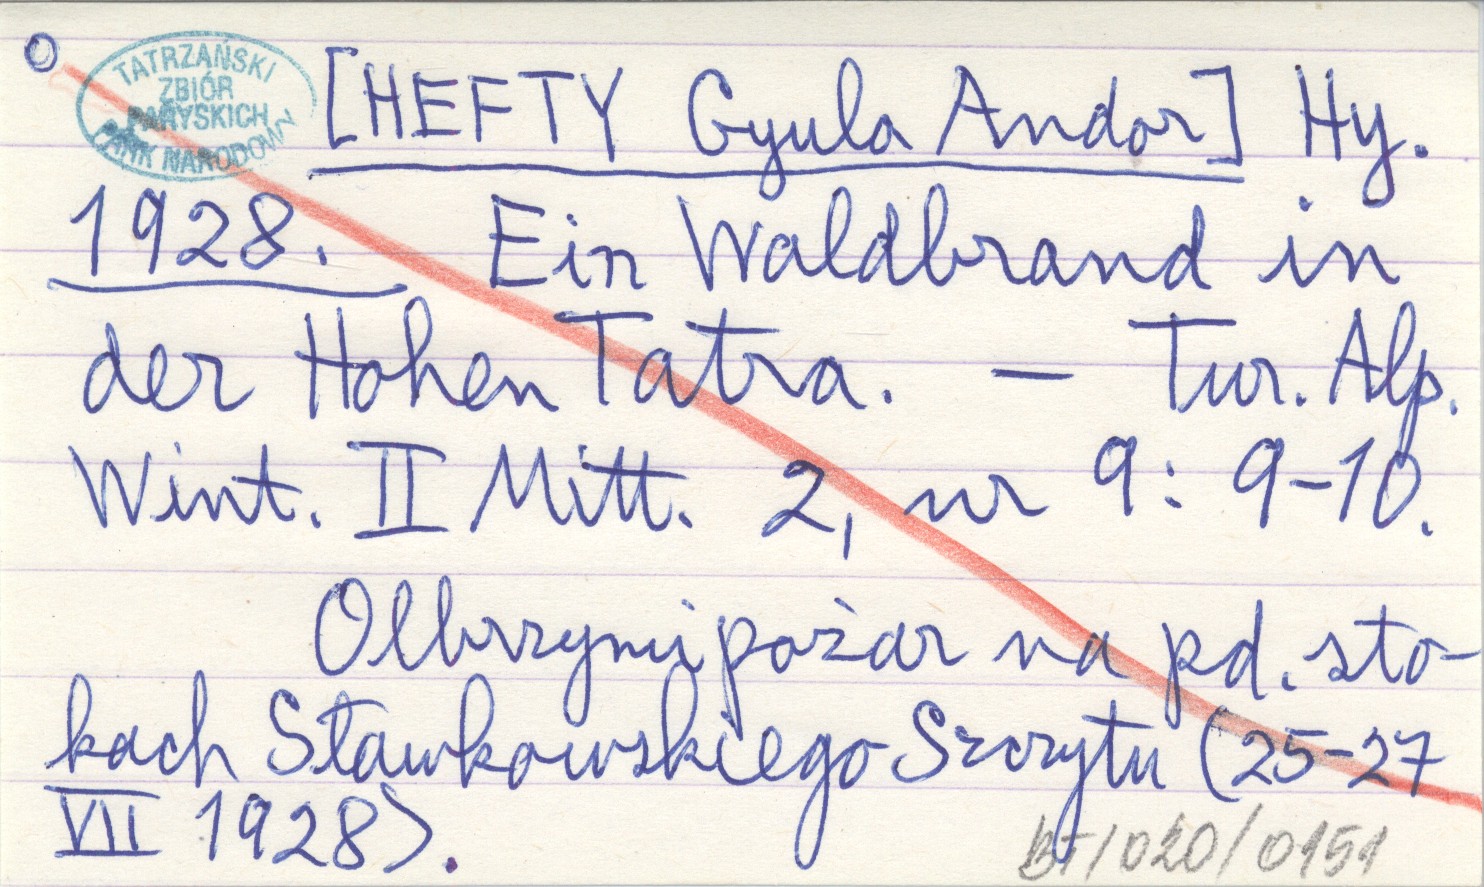 O
TATRZAŃSKI
ZBIÓR
PARYSKICH
PARK NARODOWY
[HEFTY Gyula Andor] Hy.
1928. Ein Waldbrand in
der Hohen Tatra. — Tur. Alp.
Wint. II Mitt. 2, nr 9: 9-10.
Olbrzymi pożar na pd. sto-
kach Sławkowskiego Szczytu (25-27
VII 1928).
BT/020/0151